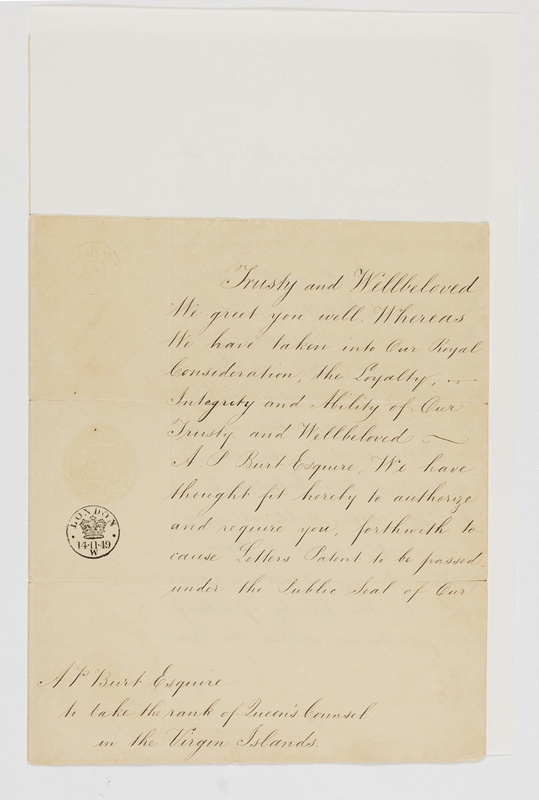 Trusty and Wellbeloved
We greet you well. Whereas
We have taken into Our Royal
Consideration, the Loyalty,
Integrity and Ability of Our
Trusty and Wellbeloved
A P Burt Esquire, We have
thought fit hereby to authorize
and require you, forthwith to
cause Letters Patent to be passed
under the Public Seal of Our
LONDON
14·11·49
W
A P Burt Esquire
to take the rank of Queen's Counsel
in the Virgin Islands.